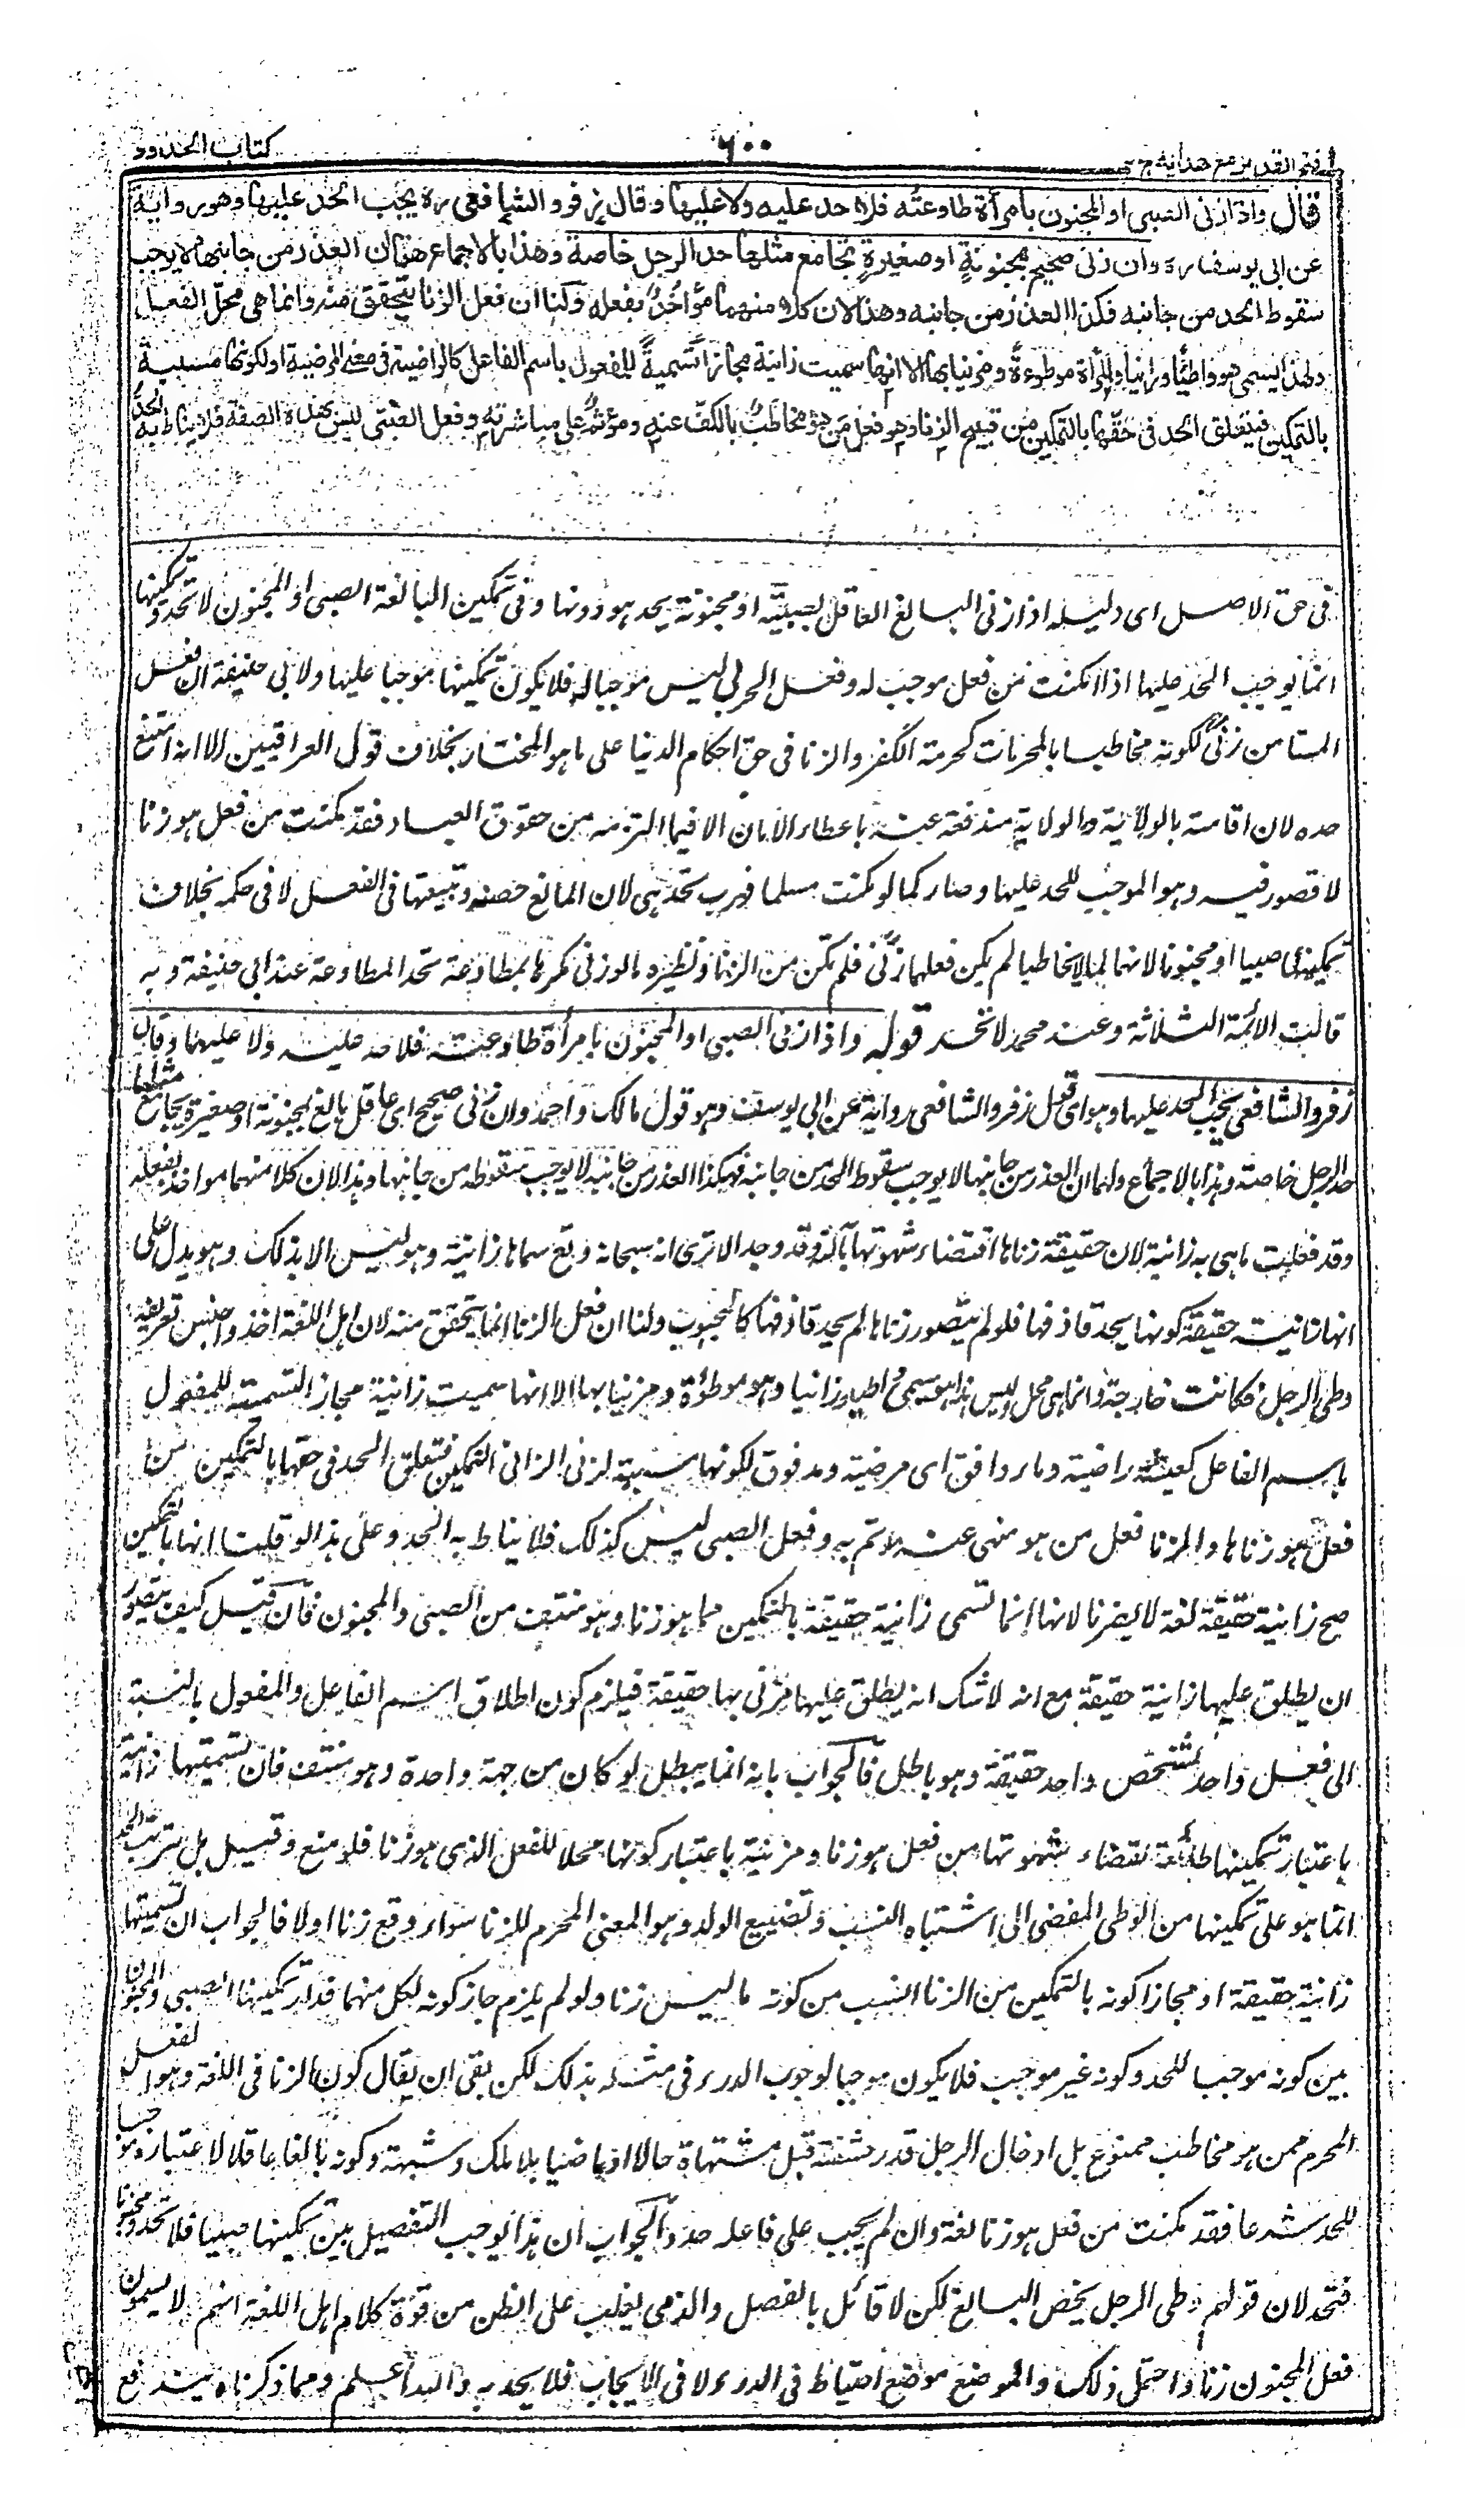 فتح القدير مع هداية ج ٢
٦٠٠
كتاب الحدود
قال واذا زنى الصبى او المجنون بامرأة طاوعته فلا حد عليه ولا عليها وقال زفر والشافعى رہ يجب الحد عليها وهو رواية
عن ابى يوسف رہ وان زنى صحيح بمجنونةٍ او صغيرةٍ تجامع مثلها حد الرجل خاصة وهذا بالاجماع لهما ان العذر من جانبها لا يوجب
سقوط الحد من جانبه فكذا العذر من جانبه وهذا لان كلا منهما مؤاخذٌ بفعله ولنا ان فعل الزنا يتحقق منه وانما هى محل الفعل
ولهذا يسمى هو واطئًا وزانيا والمرأة موطوءةً ومزنيا بها الا انها سميت زانية مجازا تسميةً للمفعول باسم الفاعل كالراضية فى معنى المرضية او لكونها مسببة
بالتمكين فتعلق الحد فى حقها بالتمكين من قبيح الزنا وهو فعل من هو مخاطبٌ بالكف عنه ومؤثمٌ على مباشرته وفعل الصبى ليس بهذه الصفة فلا يناط به الحد
فى حق الاصل اى دليله اذا زنى البالغ العاقل بصبية او مجنونة يحد هو دونها وفى تمكين البالغة الصبى او المجنون لا تحد وتمكينها
انما يوجب الحد عليها اذا مكنت من فعل موجب له وفعل الحربى ليس موجبا له فلا يكون تمكينها موجبا عليها ولابى حنيفة ان فعل
المستامن زنى لكونه مخاطبا بالمحرمات كحرمة الكفر والزنا فى حق احكام الدنيا على ما هو المختار بخلاف قول العراقيين الا انه امتنع
حده لان اقامته بالولاية والولاية مندفعة عنه باعطاء الامان الا فيما التزمه من حقوق العباد فقد مكنت من فعل هو زنا
لا قصور فيه وهو الموجب للحد عليها وصار كما لو مكنت مسلما فهرب تحد هى لان المانع خصه وتبعيتها فى الفعل لا فى حكمه بخلاف
تمكينها صبيا او مجنونا لانهما لما لا يخاطبا لم يكن فعلهما زنى فلم تمكن من الزنا ونظيره ما لو زنى مكرها بمطاوعة تحد المطاوعة عند ابى حنيفة وبه
قالت الائمة الثلاثة وعند محمد لا تحد قوله واذا زنى الصبى او المجنون بامرأة طاوعته فلا حد عليه ولا عليها وقال
زفر والشافعى يجب الحد عليها وهو اى قول زفر والشافعى رواية عن ابى يوسف وهو قول مالك واحمد وان زنى صحيح اى عاقل بالغ بمجنونة او صغيرة يجامع مثلها
حد الرجل خاصة وهذا بالاجماع ولهما ان العذر من جانبها لا يوجب سقوط الحد من جانبه فكذا العذر من جانبه لا يوجب سقوطه من جانبها وهذا لان كلا منهما مواخذ بفعله
وقد فعلت ما هى به زانية لان حقيقة زناها اقتضاء شهوتها بآلة وقد وجد الا ترى انه سبحانه وتع سماها زانية وهو ليس الا بذلك وهو يدل على
انها زانية حقيقة كونها يحد قاذفها فلو لم يتصور زناها لم يحد قاذفها كالمجبوب ولنا ان فعل الزنا انما يتحقق منه لان اهل اللغة اخذوا جنس تعريفه
وطى الرجل فكانت خارجة وانما هى محل وليس هو يسمى واطيا وزانيا وهو موطوءة ومزنيا بها الا انها سميت زانية مجاز التسمية للمفعول
باسم الفاعل كعيشة راضية وماء دافق اى مرضية ومدفوق لكونها مسببة لزنى الزانى بالتمكين فتعلق الحد فى حقها بالتمكين من
فعل هو زناها والزنا فعل من هو منهى عنه مؤثم به وفعل الصبى ليس كذلك فلا يناط به الحد وعلى هذا لو قلت انها بالتمكين
صح زانية حقيقة لغة لا يضرنا لانها انما تسمى زانية حقيقة بالتمكين مما هو زنا وهو منتف من الصبى والمجنون فان قيل كيف يتصور
ان يطلق عليها زانية حقيقة مع انه لا شك انه يطلق عليها مزنى بها حقيقة فيلزم كون اطلاق اسم الفاعل والمفعول بالنسبة
الى فعل واحد لشخص واحد حقيقة وهو باطل فالجواب بانه انما يبطل لو كان من جهة واحدة وهو منتف فان تسميتها زانية
باعتبار تمكينها طائعة لقضاء شهوتها من فعل هو زنا ومزنية باعتبار كونها محلا للفعل الذى هو زنا فلو منع وقيل بل ترتب الحد
انما هو على تمكينها من الوطى المفضى الى اشتباه النسب وتضييع الولد وهو المعنى المحرم للزنا سواء وقع زنا اولا فالجواب ان تسميتها
زانية حقيقة او مجازا كونه بالتمكين من الزنا انسب من كونه ما ليس زنا ولو لم يلزم جاز كونه لكل منهما فدار تمكينها الصبى والمجنون
بين كونه موجبا للحد وكونه غير موجب فلا يكون موجبا لوجوب الدرء فى مثله بذلك لكن بقى ان يقال كون الزنا فى اللغة وهو الفعل
المحرم ممن هو مخاطب ممنوع بل ادخال الرجل قدر حشفته قبل مشتهاة حالا او ماضيا بلا ملك وشبهة وكونه بالغا عاقلا لاعتباره موجبا
للحد شرعا فقد مكنت من فعل هو زنا لغة وان لم يجب على فاعله حد والجواب ان هذا يوجب التفصيل بين تمكينها صبيا فلا تحد ومجنونا
فتحد لان قولهم وطى الرجل يخص البالغ لكن لا قائل بالفصل والذى يغلب على الظن من قوة كلام اهل اللغة انهم لا يسمون
فعل المجنون زنا واحتمل ذلك والموضع موضع احتياط فى الدرء لا فى الايجاب فلا يحد به والله اعلم ومما ذكرناه يندفع